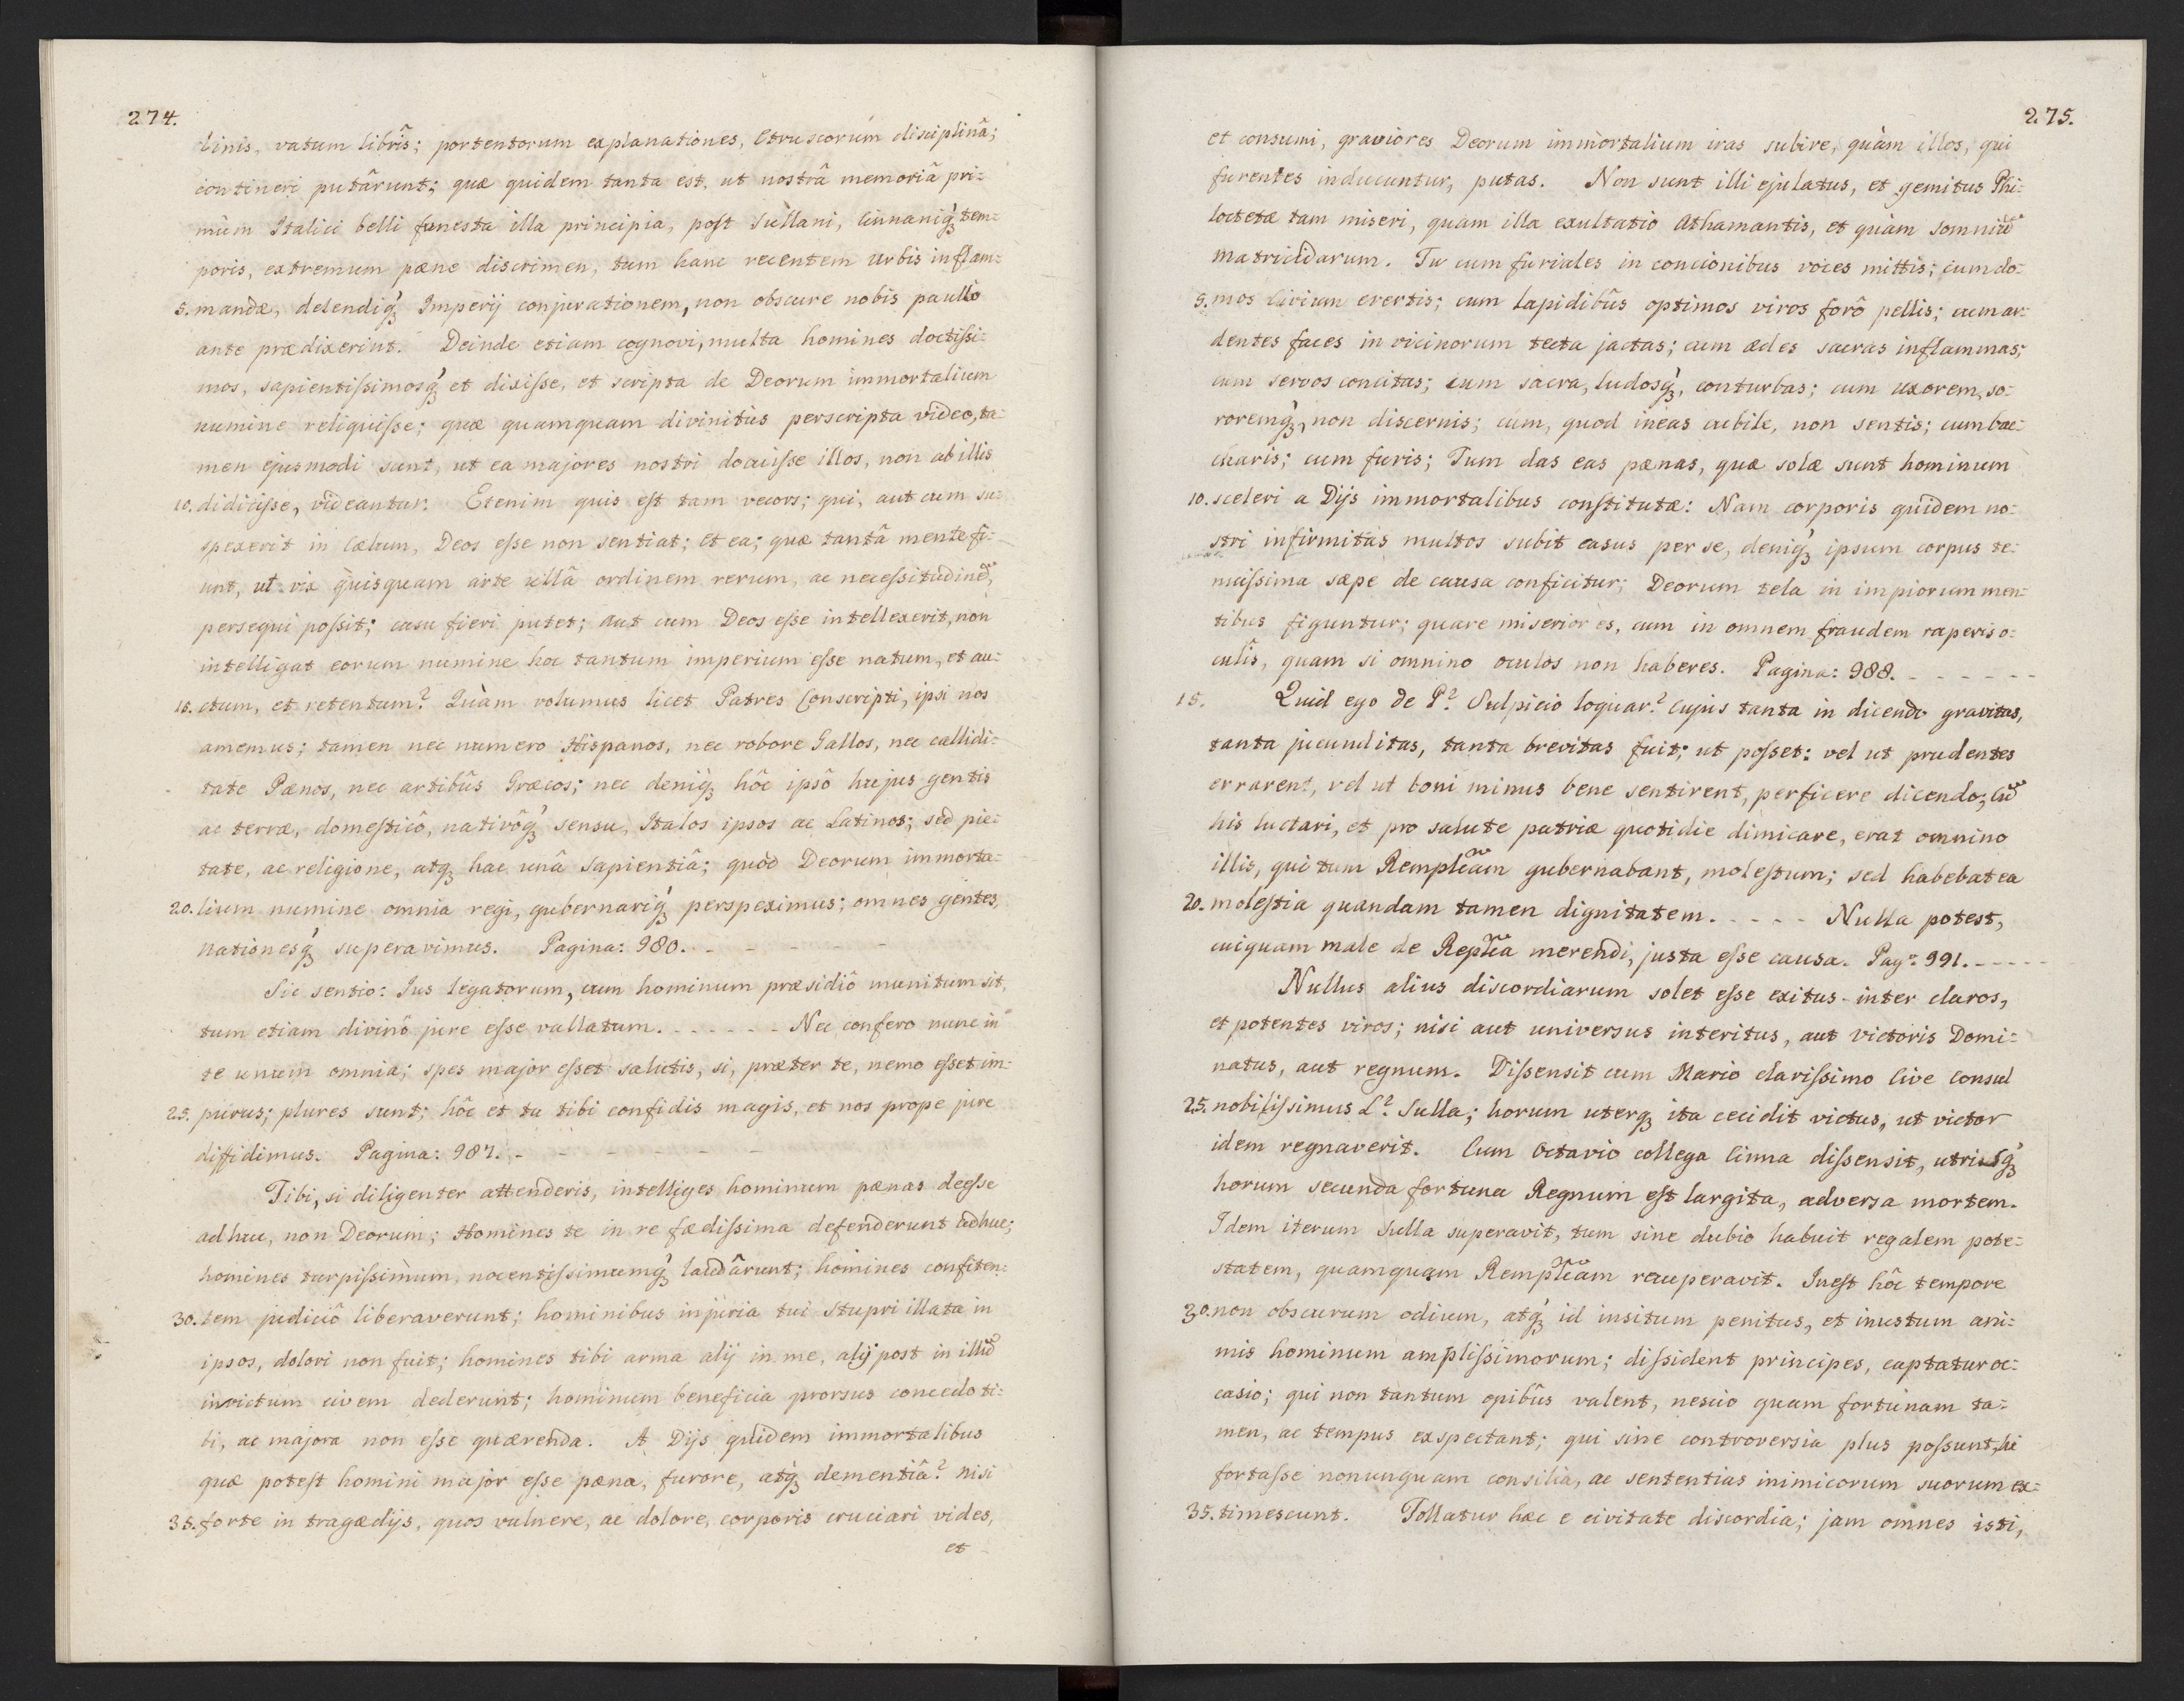 274.
linis, vatum librîs; portentorum explanationes, Etruscorum disciplinâ;
contineri putârunt; quæ quidem tanta est, ut nostrâ memoriâ pri=
mùm Italici belli funesta illa principia, post Sullani, Cinnaniq́ꝫ tem=
poris, extremum pæne discrimen, tum hanc recentem Urbis inflam=
5. mandæ, delendiq́ꝫ Imperij conjurationem, non obscure nobis paullo
ante prædixerint. Deinde etiam cognovi, multa homines doctissi=
mos, sapientissimosq́ꝫ et dixisse, et scripta de Deorum immortalium
numine reliquisse; quæ quamquam divinitùs perscripta video, ta=
men ejusmodi sunt, ut ea majores nostri docuisse illos, non ab illis
10. didicisse, videantur. Etenim quis est tam vecors; qui, aut cum su=
spexerit in Cælum, Deos esse non sentiat; et ea; quæ tantâ mente fi=
unt, ut vix quisquam arte ullâ ordinem rerum, ac necessitudinẽ,
persequi possit; casu fieri putet; aut cum Deos esse intellexerit, non
intelligat eorum numine hoc tantum imperium esse natum, et au=
15. ctum, et retentum? Quàm volumus licet Patres Conscripti, ipsi nos
amemus; tamen nec numero Hispanos, nec robore Gallos, nec callidi=
tate Pænos, nec artibûs Græcos; nec deniq̀ꝫ hôc ipsô hujus gentis
ac terræ, domesticô, nativôq́ꝫ sensu, Italos ipsos ac Latinos; sed pie=
tate, ac religione, atqꝫ hac unâ sapientiâ; quòd Deorum immorta=
20. lium numine omnia regi, gubernariq́ꝫ perspeximus; omnes gentes,
nationesq́ꝫ superavimus. Pagina: 980. - - - - -
Sic sentio: Jus legatorum, cum hominum præsidiô munitum sit,
tum etiam divinô jure esse vallatum. - - - - - - Nec confero nunc in
te unum omnia; spes major esset salutis, si, præter te, nemo esset im=
25. purus; plures sunt; hôc et tu tibi confidis magis, et nos prope jure
diffidimus. Pagina: 987. - - - - - -
Tibi, si diligenter attenderis, intelliges, hominum pænas deesse
adhuc, non Deorum; Homines te in re fædissima defenderunt adhuc;
homines turpissimum, nocentissimumq́ꝫ laudârunt; homines confiten=
30. tem judiciô liberaverunt; hominibus injuria tui stupri illata in
ipsos, dolori non fuit; homines tibi arma alij in me, alij post in illũ
invictum civem dederunt; hominum beneficia prorsus concedo ti=
bi, ac majora non esse quærenda. A Dijs quidem immortalibus
quæ potest homini major esse pæna, furore, atq̀ꝫ dementiâ? nisi
35. forte in tragædijs, quos vulnere, ac dolore, corporis cruciari vides,
et
275.
et consumi, graviores Deorum immortalium iras subire, quàm illos, qui
furentes inducuntur, putas. Non sunt illi ejulatus, et gemitus Phi=
loctetæ tam miseri, quam illa exultatio Athamantis, et quàm somniũ
matricidarum. Tu cum furiales in concionibus voces mittis; cum do=
5. mos Civium evertis; cum lapidibûs optimos viros forô pellis; cum ar=
dentes faces in vicinorum tecta jactas; cum ædes sacras inflammas;
cum servos concitas; cum sacra, ludosq́ꝫ, conturbas; cum uxorem, so=
roremq́ꝫ, non discernis; cùm, quod ineas cubile, non sentis; cum bac=
charis; cum furis; Tum das eas pænas, quæ solæ sunt hominum
10. sceleri a Dijs immortalibus constitutæ: Nam corporis quidem no=
stri infirmitas multos subit casus per se, deniq́ꝫ ipsum corpus te=
nuissima sæpe de causa conficitur; Deorum tela in impiorum men=
tibus figuntur; quare miserior es, cum in omnem fraudem raperis o=
culîs, quam si omnino oculos non haberes. Pagina: 988. - - - - - -
15. Quid ego de P? Sulpicio loquar? cujus tanta in dicendo gravitas,
tanta jucunditas, tanta brevitas fuit; ut posset: vel ut prudentes
errarent, vel ut boni minus bene sentirent, perficere dicendo; Cũ
his luctari, et pro salute patriæ quotidie dimicare, erat omnino
illis, qui tum Remplicam gubernabant, molestum; sed habebat ea
20. molestia quandam tamen dignitatem. - - - - - Nulla potest,
cuiquam male de Replica merendi, justa esse causa. Pagª: 991. - - - - -
Nullus alius discordiarum solet esse exitus inter claros,
et potentes viros; nisi aut universus interitus, aut victoris Domi=
natus, aut regnum. Dissensit cum Mario clarissimo Cive Consul
25. nobilissimus L? Sulla; horum uterqꝫ ita cecidit victus, ut victor
idem regnaverit. Cum Octavio collega Cinna dissensit, utrisq́ꝫ
horum secunda fortuna Regnum est largita, adversa mortem.
Idem iterum Sulla superavit, tum sine dubio habuit regalem pote=
statem, quamquam Remplicam recuperavit. Inest hôc tempore
30. non obscurum odium, atq́ꝫ id insitum penitus, et inustum ani=
mis hominum amplissimorum; dissident principes, captatur oc=
casio; qui non tantum opibûs valent, nescio quam fortunam ta=
men, ac tempus exspectant; qui sine controversia plus possunt, hi
fortasse nonunquam consilia, ac sententias inimicorum suorum ex=
35. timescunt. Tollatur hæc e civitate discordia; jam omnes isti,